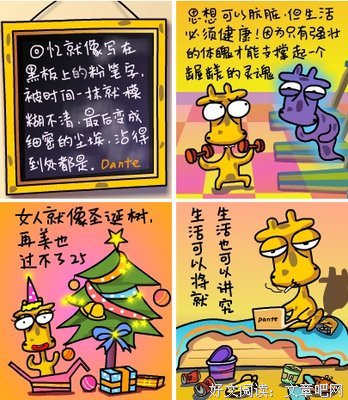 回忆就像写在
黑板上的粉笔字,
被时间一抹就模
糊不清,最后变成
细密的尘埃,沾得
到处都是。Dante
思想可以肮脏,但生活
必须健康!因为只有强壮
的体魄才能支撑起一个
龌龊的灵魂
女人就像圣诞树,
再美也
过不了25
生活可以将就
生活也可以讲究
Dante
好文阅读:文章吧网